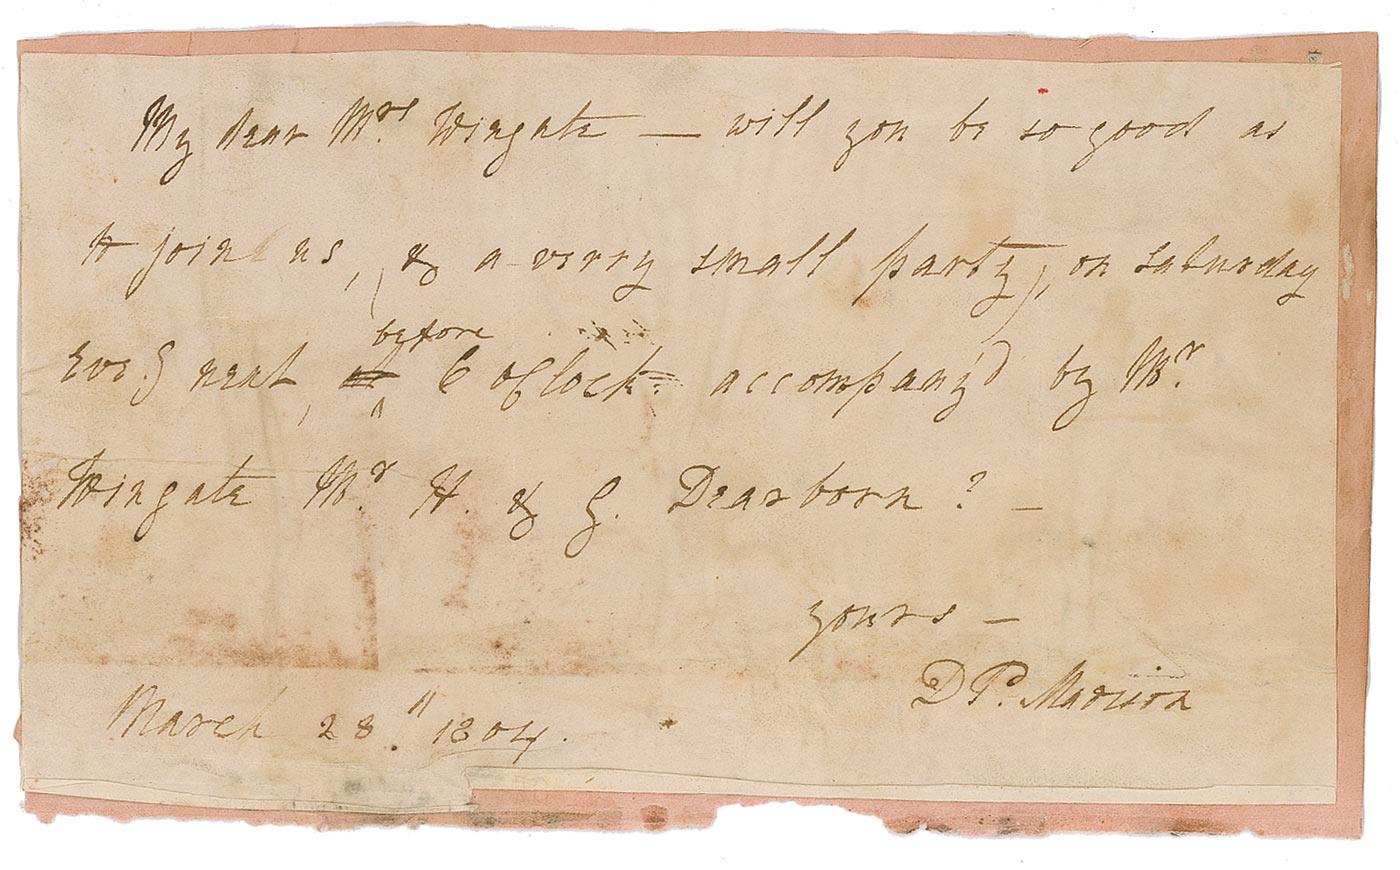 My dear Mrs. Wingate — will you be so good as
to join us, (& a verry small party), on Saturday
Eve.g next, before 6 oClock= accompany'd by Mr.
Wingate Mr. H. & G. Dearborn? —
yours —
D P. Madison
March 28." 1804.